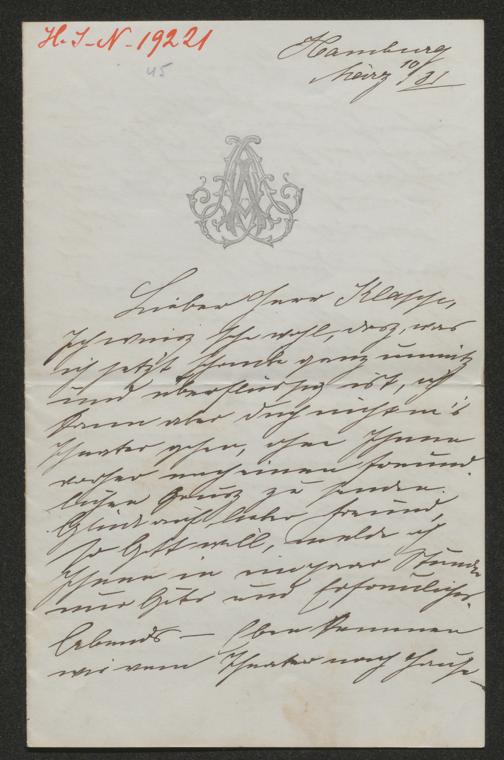 H.I-N-19221
45
Hamburg
März 10/81
Lieber Herr Klapp,
Ich weiß sehr wohl, daß, was
ich jetzt schreibe ganz unnütz
und überflüssig ist, ich
kann aber doch nicht in's
Theater gehen, ohne Ihnen
vorher noch einen freund-
lichen Gruß zu senden.
Glück auf lieber Freund,
so Gott will, melde ich
Ihnen in ein paar Stunden
nur Gutes und Erfreuliches.
Abends — Eben kommen
wir vom Theater nach Hause,